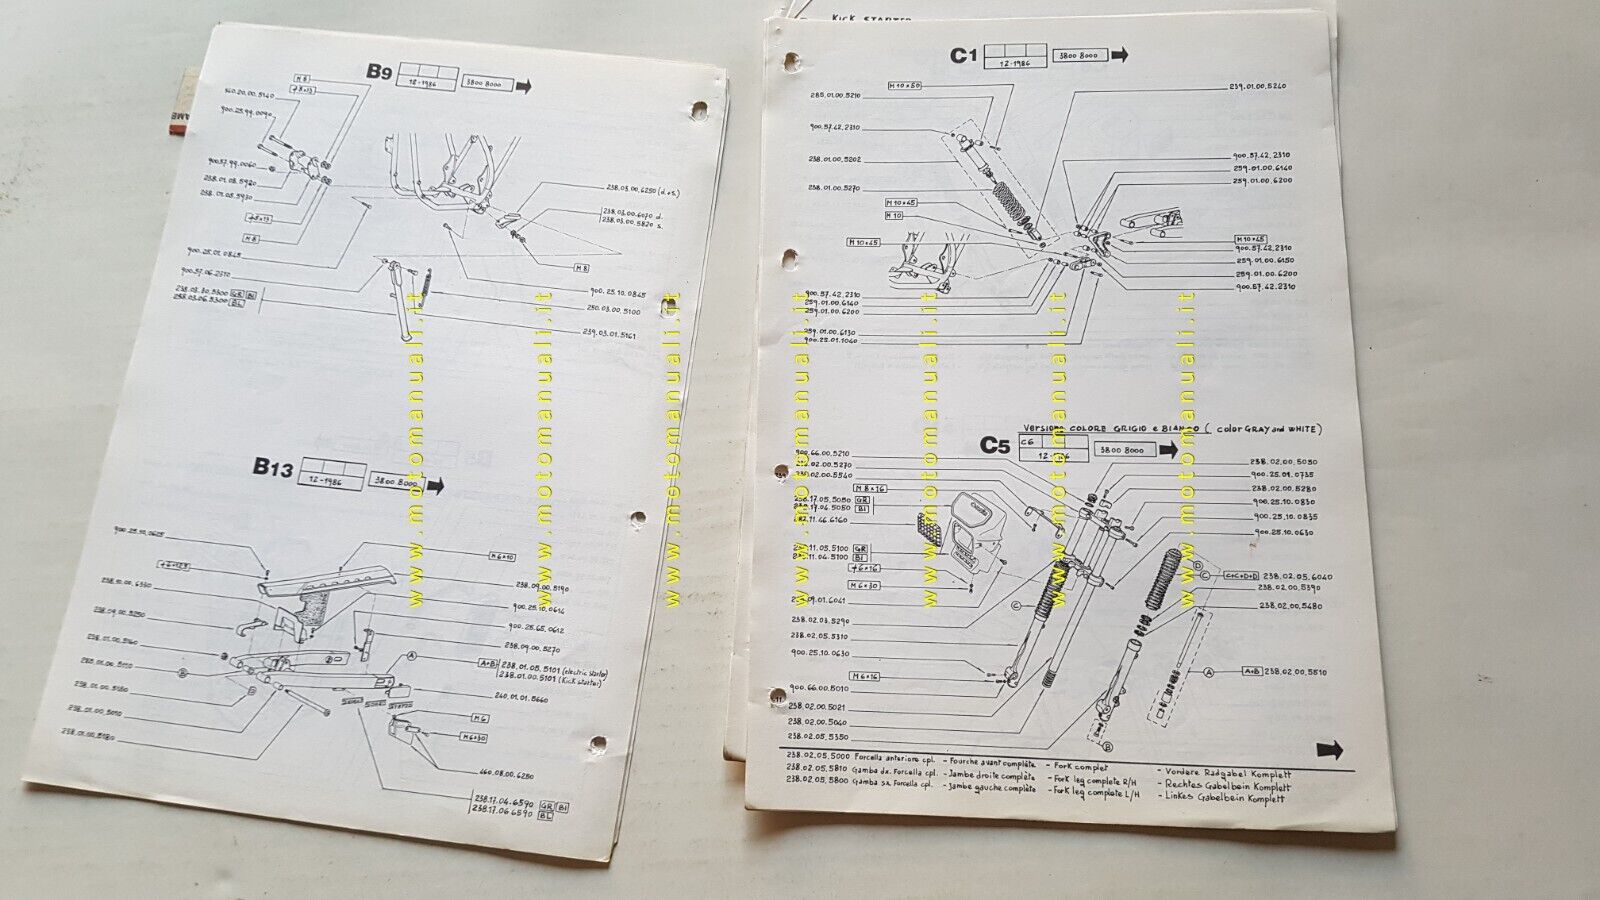 KICK STARTER
B9
12-1986
3800 8000
M 8
+8×13
360.20.00.5140
900.25.99.0090
900.57.99.0060
238.01.03.5920
238.01.05.5930
+8×13
M 8
238.03.00.6250 (d.+s.)
238.03.00.6070 d.
238.03.00.5820 s.
M 8
900.25.01.0845
900.57.06.2310
238.03.30.5300 GR BI
238.03.06.5300 BL
900.25.10.0845
250.03.00.5100
239.03.01.5161
B13
12-1986
3800 8000
900.25.10.0625
M6×10
238.10.00.6330
238.09.00.5190
900.25.10.0614
238.09.00.5250
900.25.65.0612
238.09.00.5270
238.01.00.5160
A
A+B 238.01.05.5101 (electric starter)
238.01.00.5101 (Kick starter)
285.01.00.5110
B
238.01.00.5130
240.01.01.5660
238.01.00.5010
M6
238.01.00.5180
M6×30
460.08.00.6250
238.17.04.6590 GR BI
238.17.06.6590 BL
C1
12-1986
3800 8000
M10×50
285.01.00.5210
239.01.00.5240
900.57.42.2310
238.01.00.5202
900.57.42.2310
259.01.00.6140
238.01.00.5270
259.01.00.6200
M10×45
M10
M10×45
M10×45
900.57.42.2310
259.01.00.6150
259.01.00.6200
900.57.42.2310
900.57.42.2310
259.01.00.6140
259.01.00.6200
259.01.00.6130
900.25.01.1040
VERSIONE COLORE GRIGIO e BIANCO ( color GRAY and WHITE)
C5
C6
3800 8000
900.66.00.5210
238.02.00.5030
900.25.01.0735
M8×16
238.02.00.5280
238.17.05.5050 GR
238.17.04.5050 BI
900.25.10.0830
900.25.10.0835
900.25.10.0630
GR
BI
+6×16
M6×30
D
C
C+C+D+D 238.02.05.6040
238.02.00.5390
238.02.00.5480
C
238.02.03.5290
238.02.05.5310
900.25.10.0630
M6×16
A
A+B 238.02.00.5510
900.66.00.5010
238.02.00.5021
238.02.00.5040
238.02.05.5350
B
238.02.05.5000 Forcella anteriore cpl. - Fourche avant complète - Fork complet - Vordere Radgabel Komplett
238.02.05.5810 Gamba dx. Forcella cpl. - Jambe droite complète - Fork leg complete R/H - Rechtes Gabelbein Komplett
238.02.05.5800 Gamba sx. Forcella cpl. - Jambe gauche complète - Fork leg complete L/H - Linkes Gabelbein Komplett
www.motomanuali.it
www.motomanuali.it
www.motomanuali.it
www.motomanuali.it
www.motomanuali.it
www.motomanuali.it
www.motomanuali.it